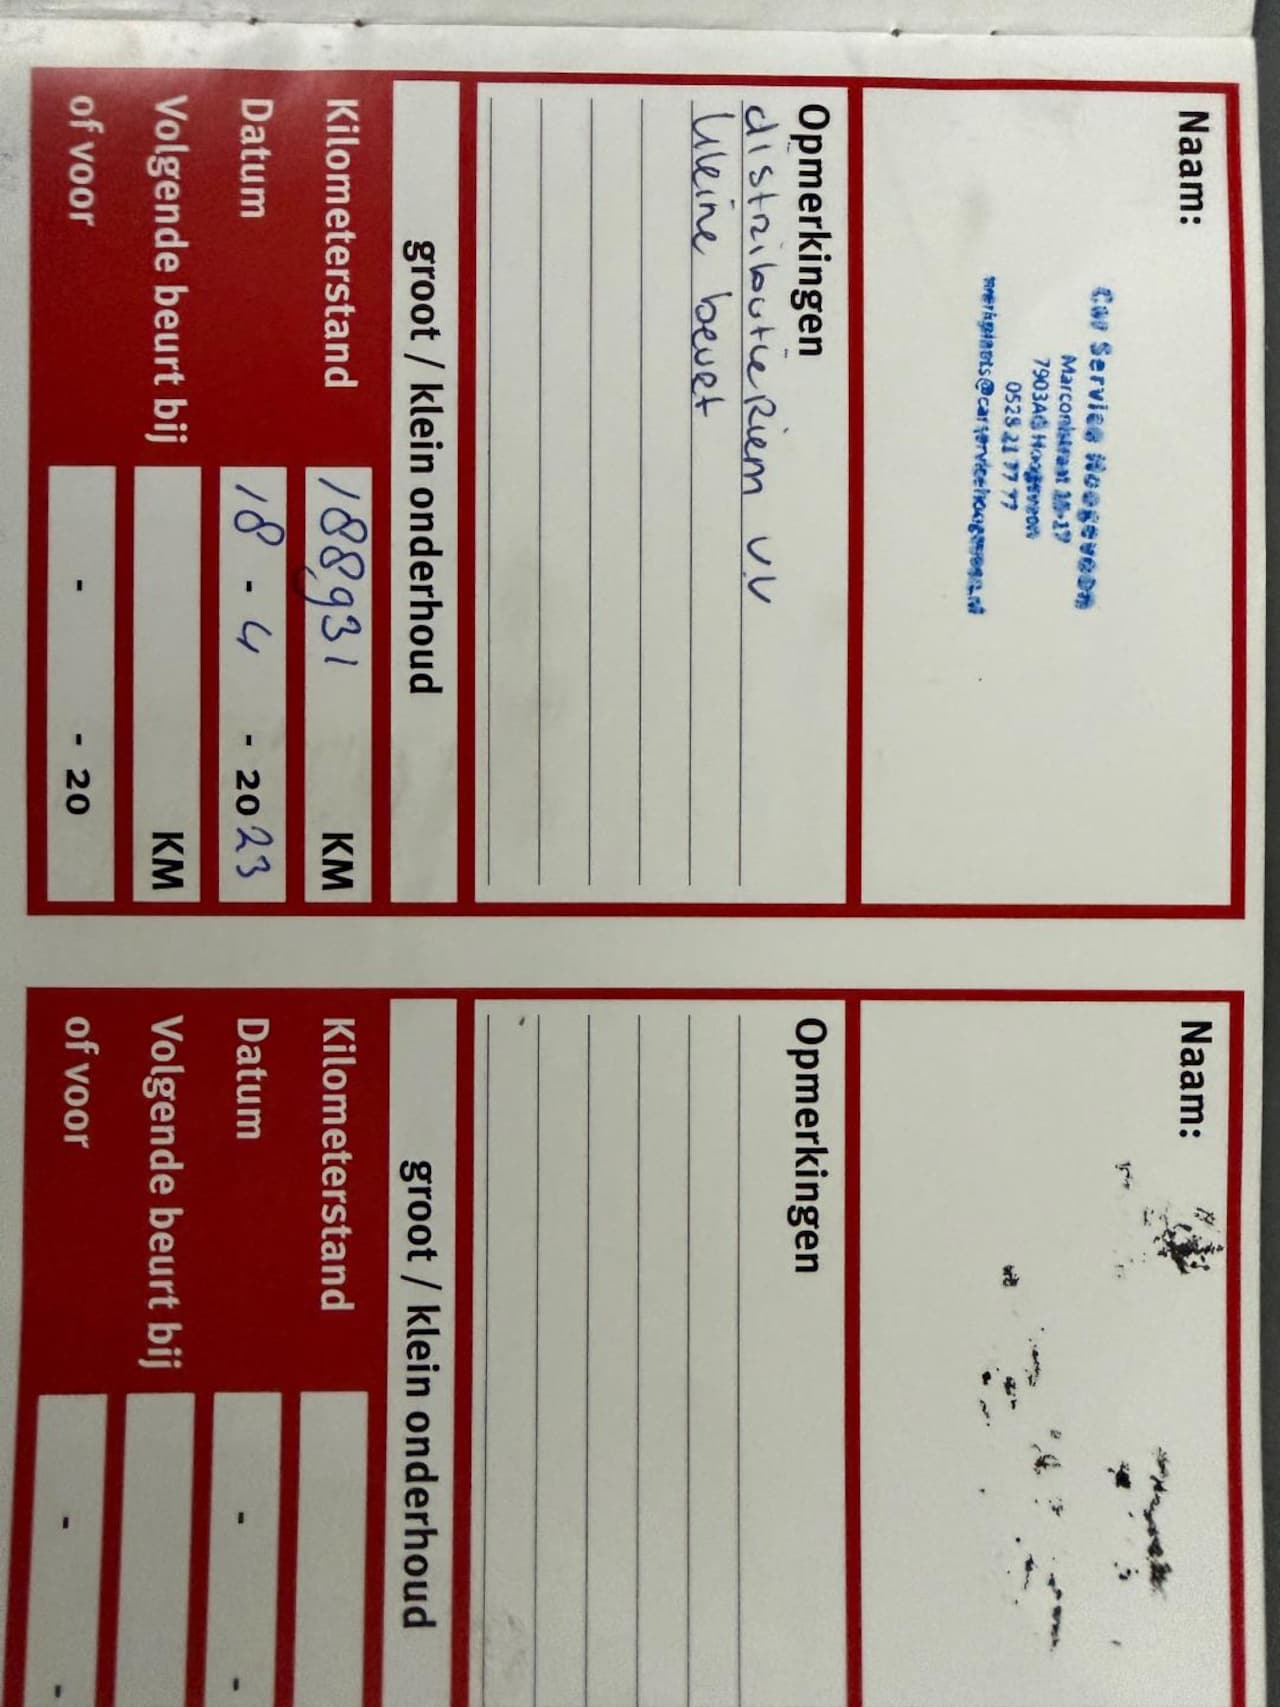 Naam:
Car Service Hoogeveen
Marconistraat 15-17
7903AG Hoogeveen
0528 21 77 77
werkplaats@carservicehoogeveen.nl
Opmerkingen
distributieRiem V.V
kleine beurt
groot / klein onderhoud
Kilometerstand 188.931 KM
Datum 18 - 4 - 2023
Volgende beurt bij KM
of voor - - 20
Naam:
Opmerkingen
groot / klein onderhoud
Kilometerstand
Datum - -
Volgende beurt bij
of voor - -